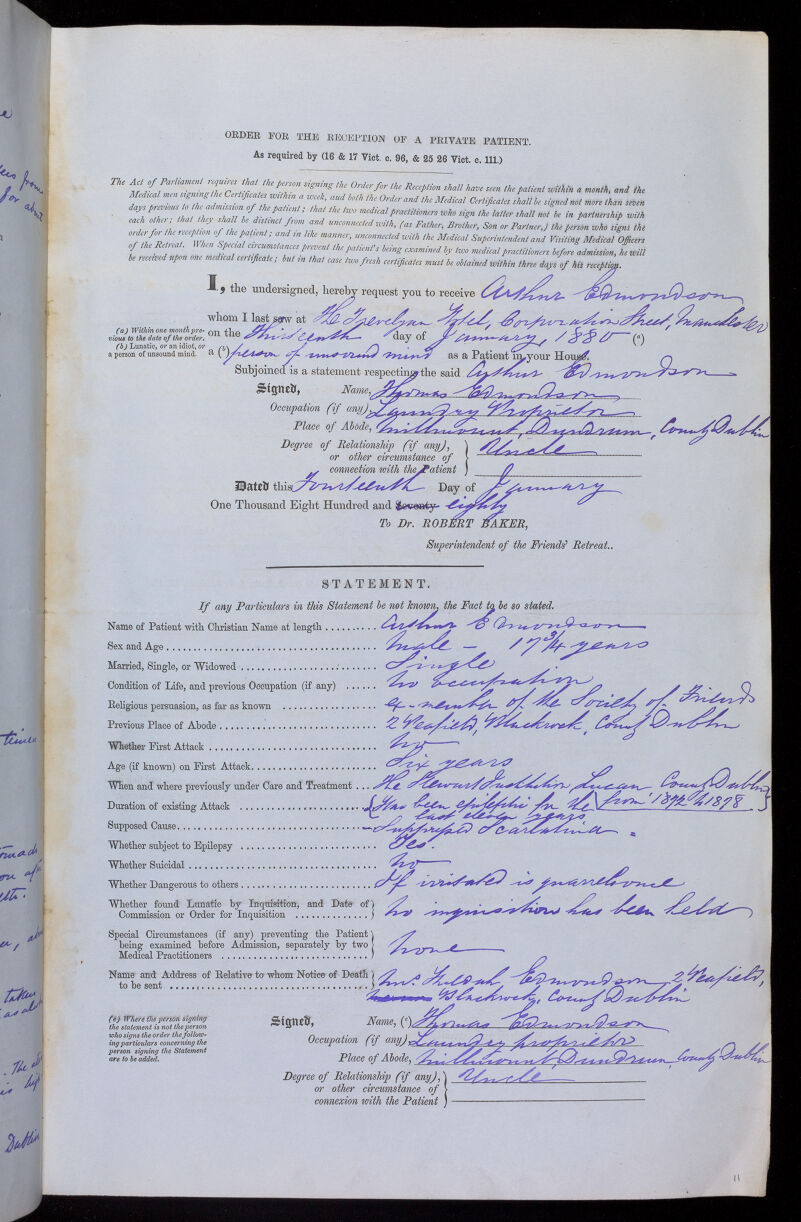 ORDER FOR THE RECEPTION OF A PRIVATE PATIENT.
As required by (16 & 17 Vict. c. 96, & 25 26 Vict. c. 111.)
The Act of Parliament requires that the person signing the Order for the Reception shall have seen the patient within a month, and the
Medical men signing the Certificates within a week, and both the Order and the Medical Certificates shall be signed not more than seven
days previous to the admission of the patient; that the two medical practitioners who sign the latter shall not be in partnership with
each other; that they shall be distinct from and unconnected with, (as Father, Brother, Son or Partner,) the person who signs the
order for the reception of the patient; and in like manner, unconnected with the Medical Superintendent and Visiting Medical Officers
of the Retreat. When Special circumstances prevent the patient's being examined by two medical practitioners before admission, he will
be received upon one medical certificate; but in that case two fresh certificates must be obtained within three days of his reception.
I, the undersigned, hereby request you to receive Arthur Edmondson
whom I last saw at The Trevelyan Hotel, Corporation Street, Manchester
(a) Within one month previous to the date of the order.
on the Thirteenth day of January, 1880 (a)
(b) Lunatic, or an idiot, or a person of unsound mind.
a (b) person of unsound mind as a Patient in your House.
Subjoined is a statement respecting the said Arthur Edmondson
Signed, Name, Thomas Edmondson
Occupation (if any), Laundry Proprietor
Place of Abode, Millmount, Dundrum, County Dublin
Degree of Relationship (if any), or other circumstance of connection with the Patient } Uncle
Dated this Fourteenth Day of January
One Thousand Eight Hundred and Seventy eighty
To Dr. ROBERT BAKER,
Superintendent of the Friends' Retreat..
STATEMENT.
If any Particulars in this Statement be not known, the Fact to be so stated.
Name of Patient with Christian Name at length .......... Arthur Edmondson
Sex and Age .......... Male - 17 3/4 years
Married, Single, or Widowed .......... Single
Condition of Life, and previous Occupation (if any) ...... No occupation
Religious persuasion, as far as known .......... Ex-member of the Society of Friends
Previous Place of Abode .......... 2 Peafield, Blackrock, County Dublin
Whether First Attack .......... No
Age (if known) on First Attack .......... Six years
When and where previously under Care and Treatment ... The Stewart Institution Lucan County Dublin
from 1872 to 1878
Duration of existing Attack .......... Has been epileptic for the
last eleven years
Supposed Cause .......... Suppressed Scarlatina
Whether subject to Epilepsy .......... Yes.
Whether Suicidal .......... No
Whether Dangerous to others .......... If irritated is quarrelsome
Whether found Lunatic by Inquisition, and Date of Commission or Order for Inquisition .......... } No inquisition has been held
Special Circumstances (if any) preventing the Patient being examined before Admission, separately by two Medical Practitioners .......... } None
Name and Address of Relative to whom Notice of Death to be sent .......... } Mrs. Huldah Edmondson, 2 Peafield,
Blackrock, County Dublin
(c) Where the person signing the statement is not the person who signs the order the following particulars concerning the person signing the Statement are to be added.
Signed, Name, (c) Thomas Edmondson
Occupation (if any) Laundry proprietor
Place of Abode, Millmount, Dundrum, County Dublin
Degree of Relationship (if any), or other circumstance of connexion with the Patient } Uncle
11